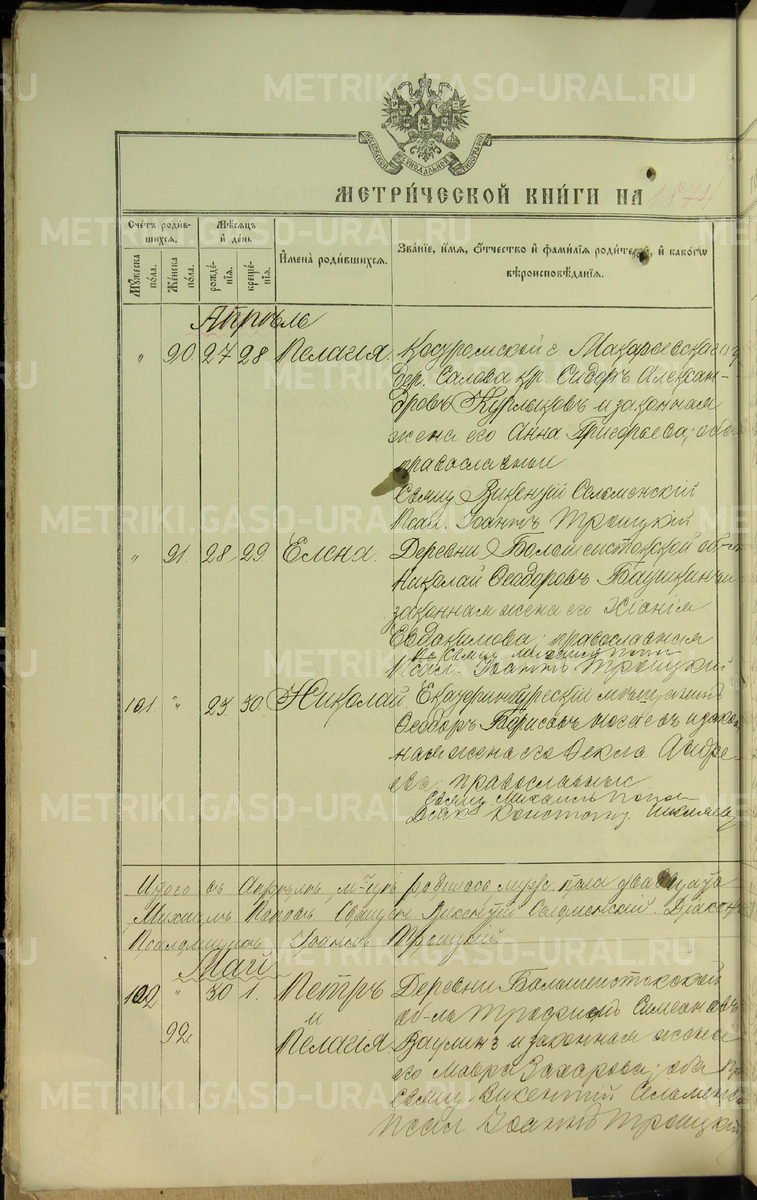 METRIKI.GASO-URAL.RU
МЕТРИ́ЧЕСКОЙ КНИ́ГИ НА 1874
Сче́тъ роди́в-шихся.
Мѣ́сяцъ и҆ де́нь
И҆мена̀ роди́вшихся.
Зва́нїе, и҆́мѧ, ѻ҆́тчество и҆ фами́лїѧ роди́телей, и҆ како́гѡ вѣроисповѣ́данїѧ.
Мꙋ́жеска по́ла.
Же́нска по́ла.
рожде́-нїѧ.
креще́-нїѧ.
Апрѣль
" 90. 27 28 Пелагія. Костромской г. Макарьевскаго у
дер. Салова кр. Сидоръ Алексан-
дровъ и законная
жена его Анна Григорьева; оба
православные.
Свящ. Викентій Селеменскій
Псал. Іоаннъ Троицкій
" 91. 28 29. Елена. Деревни Большеистокской об-ль
Николай Ѳеодоровъ и
законная жена его Хіонія
Евдокимова; православныя
Свящ. Михаилъ Попов
Псал. Іоаннъ Троицкій
101. " 23. 30. Николай. Екатеринбургскій мѣщанинъ
Ѳеодоръ Борисовъ и закон
ная жена его Ѳекла Андре-
ева; православные
Свящ. Михаилъ Попов
Діак. Констант.
Итого въ Апрѣлѣ м-цѣ родилось муж. пола двадцать
Михаилъ Поповъ. Священ. Викентій Селеменскій. Діакон
Псаломщикъ Іоаннъ Троицкій.
Май
102 " 30 1. Петръ Деревни Большеистокской
и об-ль Трофимъ Симеоновъ
92. Пелагія. Ваулинъ и законная жена
его Мавра Захарова; оба пр
Свящ. Викентій Селеменс
Псал Іоаннъ Троицкій